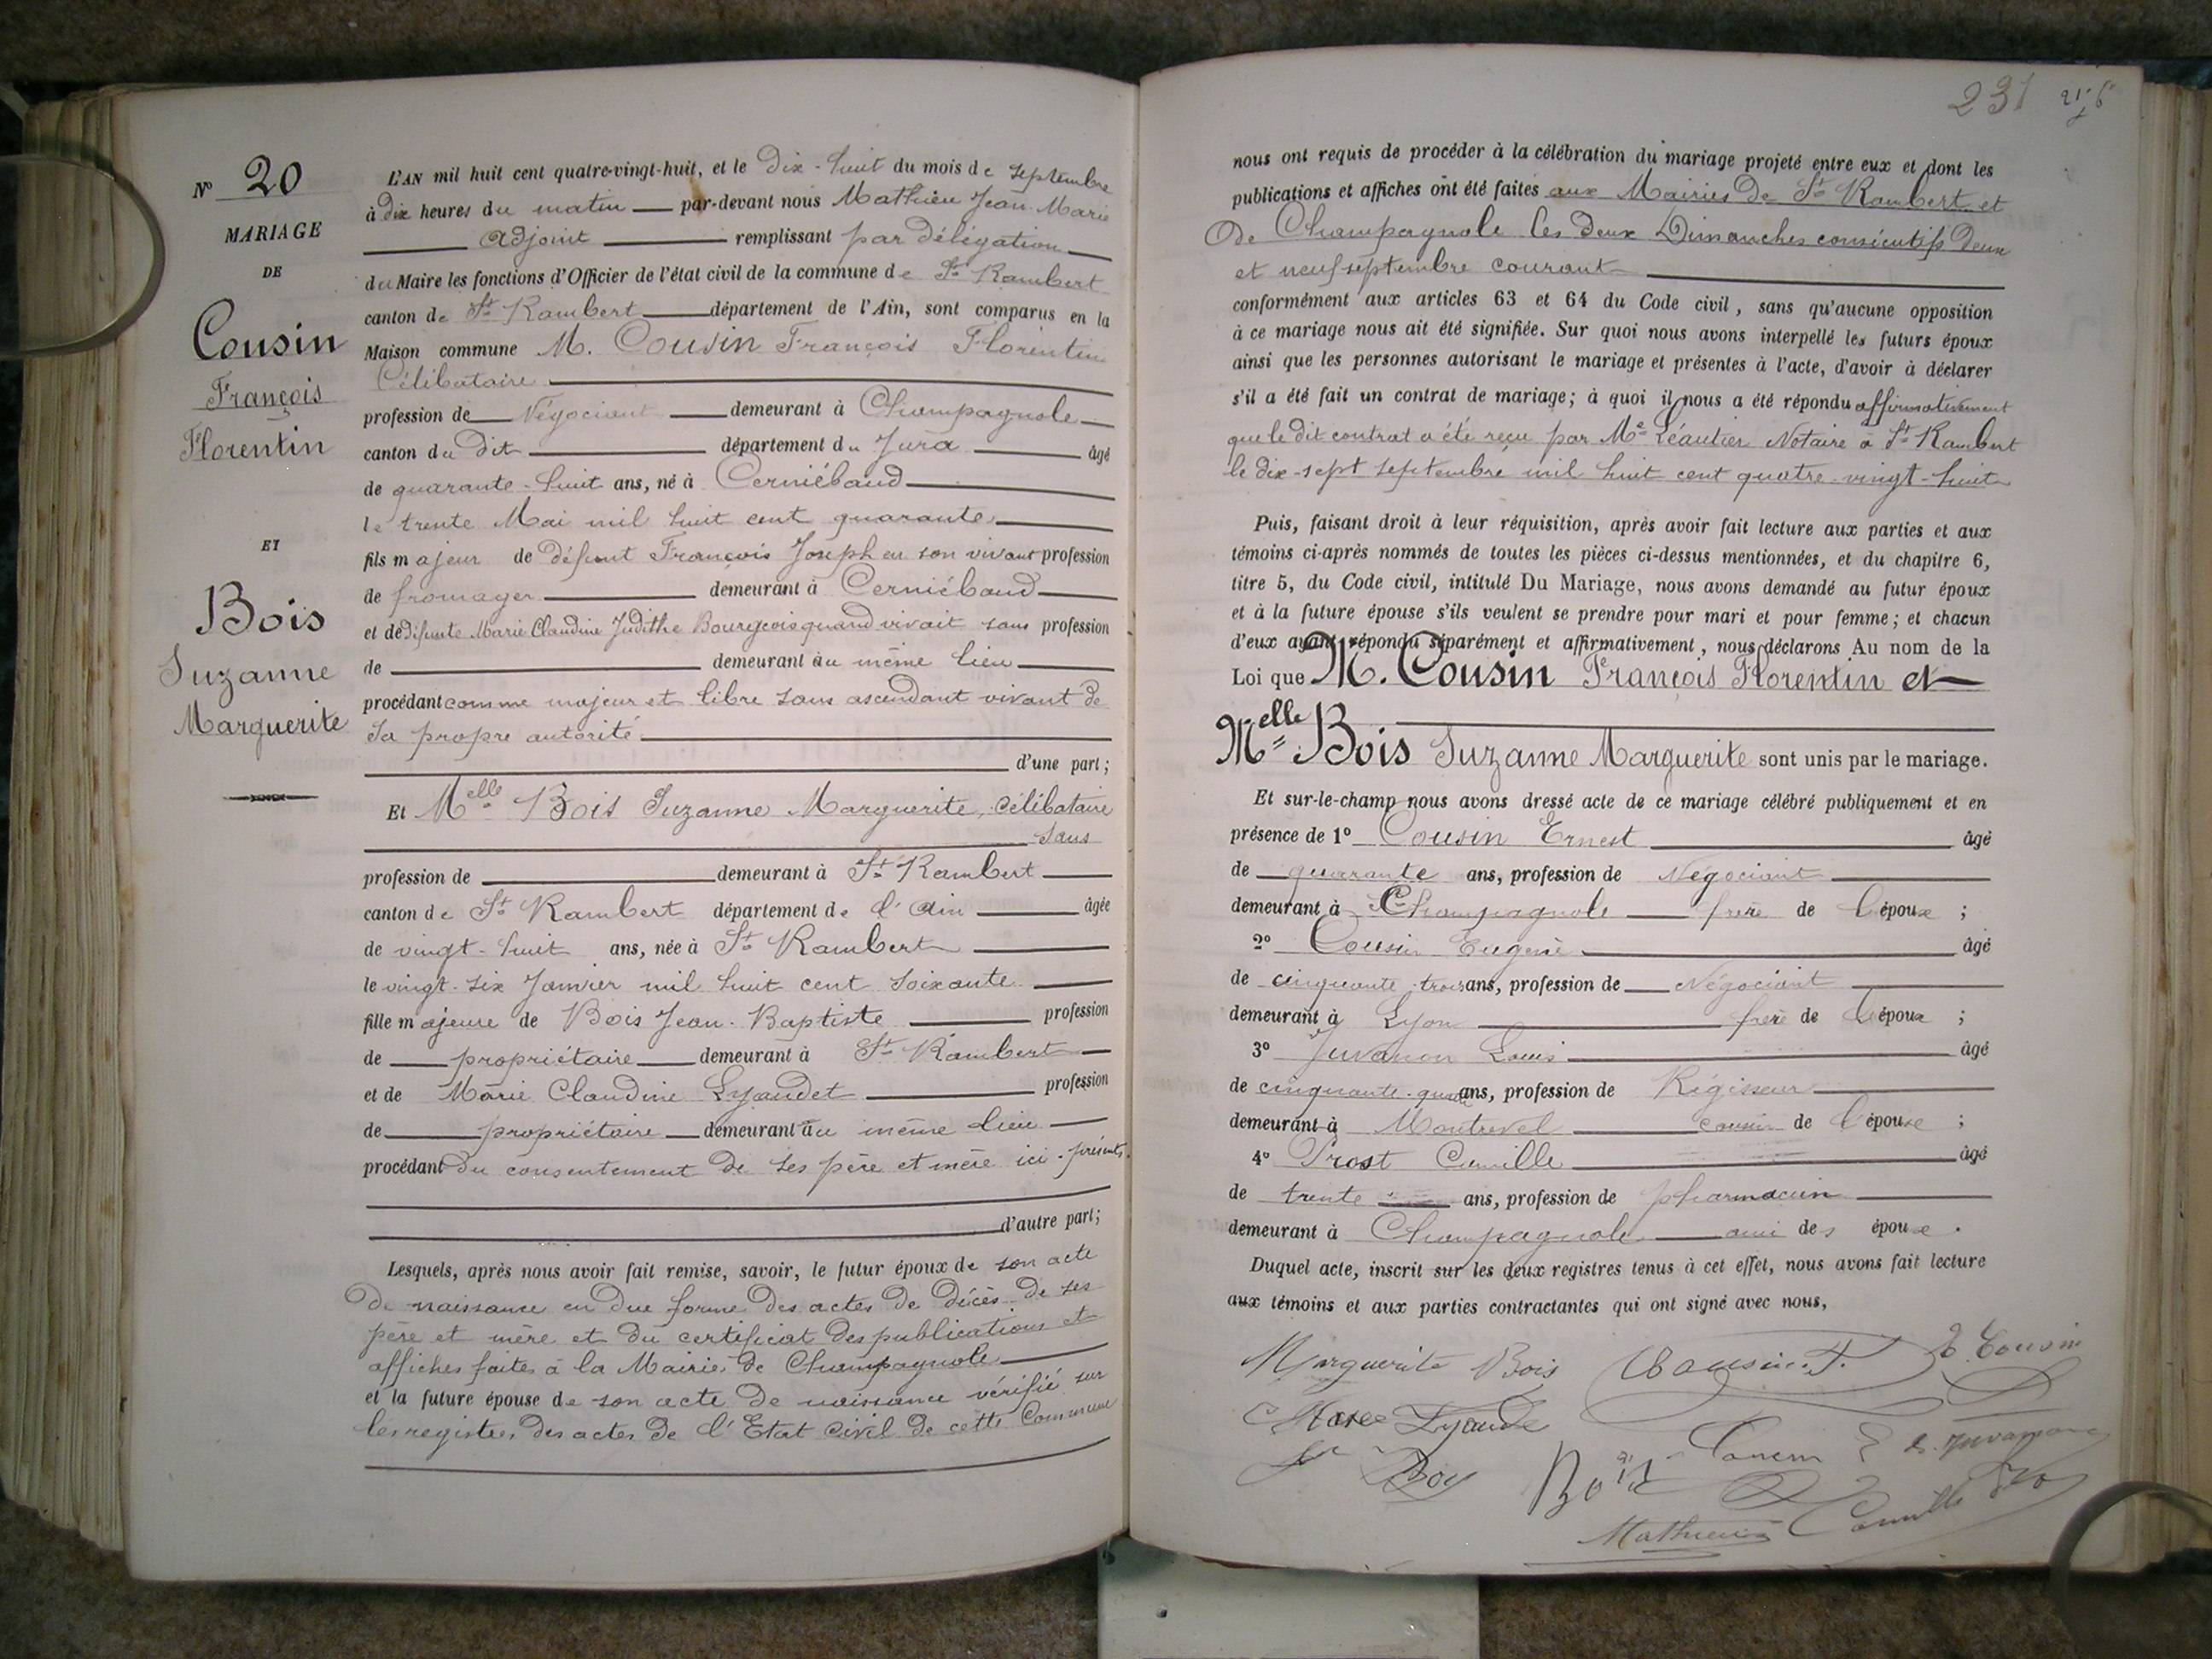 N° 20
MARIAGE
DE
Cousin
François
Florentin
ET
Bois
Suzanne
Marguerite
L'AN mil huit cent quatre-vingt-huit, et le Dix-huit du mois de septembre
à dix heures du matin par-devant nous Mathieu Jean Marie
adjoint remplissant par délégation
du Maire les fonctions d'Officier de l'état civil de la commune de St Rambert
canton de St Rambert département de l'Ain, sont comparus en la
Maison commune M. Cousin François Florentin
Célibataire
profession de Négociant demeurant à Champagnole
canton du dit département du Jura âgé
de quarante-huit ans, né à Cerniébaud
le trente Mai mil huit cent quarante
fils majeur de défunt François Joseph en son vivant profession
de fromager demeurant à Cerniébaud
et de défunte Marie Claudine Judithe Bourgeois quand vivait sans profession
de demeurant au même lieu
procédant comme majeur et libre sans ascendant vivant de
sa propre autorité
d'une part;
Et Melle Bois Suzanne Marguerite, célibataire
sans
profession de demeurant à St Rambert
canton de St Rambert département de l'Ain âgée
de vingt-huit ans, née à St Rambert
le vingt-six Janvier mil huit cent soixante
fille majeure de Bois Jean-Baptiste profession
de propriétaire demeurant à St Rambert
et de Marie Claudine Lyaudet profession
de propriétaire demeurant au même lieu
procédant du consentement de ses père et mère ici présents.
d'autre part;
Lesquels, après nous avoir fait remise, savoir, le futur époux de son acte
de naissance en due forme des actes de décès de ses
père et mère et du certificat des publications et
affiches faites à la Mairie de Champagnole
et la future épouse de son acte de naissance vérifié sur
les registres des actes de l'Etat civil de cette Commune
231
nous ont requis de procéder à la célébration du mariage projeté entre eux et dont les
publications et affiches ont été faites aux Mairies de St Rambert et
de Champagnole les deux Dimanches consécutifs deux
et neuf septembre courant
conformément aux articles 63 et 64 du Code civil, sans qu'aucune opposition
à ce mariage nous ait été signifiée. Sur quoi nous avons interpellé les futurs époux
ainsi que les personnes autorisant le mariage et présentes à l'acte, d'avoir à déclarer
s'il a été fait un contrat de mariage; à quoi il nous a été répondu affirmativement
que le dit contrat a été reçu par Me Léautier Notaire à St Rambert
le dix-sept septembre mil huit cent quatre-vingt-huit
Puis, faisant droit à leur réquisition, après avoir fait lecture aux parties et aux
témoins ci-après nommés de toutes les pièces ci-dessus mentionnées, et du chapitre 6,
titre 5, du Code civil, intitulé Du Mariage, nous avons demandé au futur époux
et à la future épouse s'ils veulent se prendre pour mari et pour femme; et chacun
d'eux ayant répondu séparément et affirmativement, nous déclarons Au nom de la
Loi que M. Cousin François Florentin et
Melle Bois Suzanne Marguerite sont unis par le mariage.
Et sur-le-champ nous avons dressé acte de ce mariage célébré publiquement et en
présence de 1° Cousin Ernest âgé
de quarante ans, profession de Négociant
demeurant à Champagnole frère de l'époux ;
2° Cousin Eugène âgé
de cinquante-trois ans, profession de Négociant
demeurant à Lyon frère de l'époux ;
3° Juvanon Louis âgé
de cinquante-quatre ans, profession de Régisseur
demeurant à Montrevel cousin de l'épouse ;
4° Prost Camille âgé
de trente ans, profession de pharmacien
demeurant à Champagnole ami des époux.
Duquel acte, inscrit sur les deux registres tenus à cet effet, nous avons fait lecture
aux témoins et aux parties contractantes qui ont signé avec nous,
Marguerite Bois Cousin F. E. Cousin
Lyaude
L. Juvanon
Boy Bois
Mathieu Camille